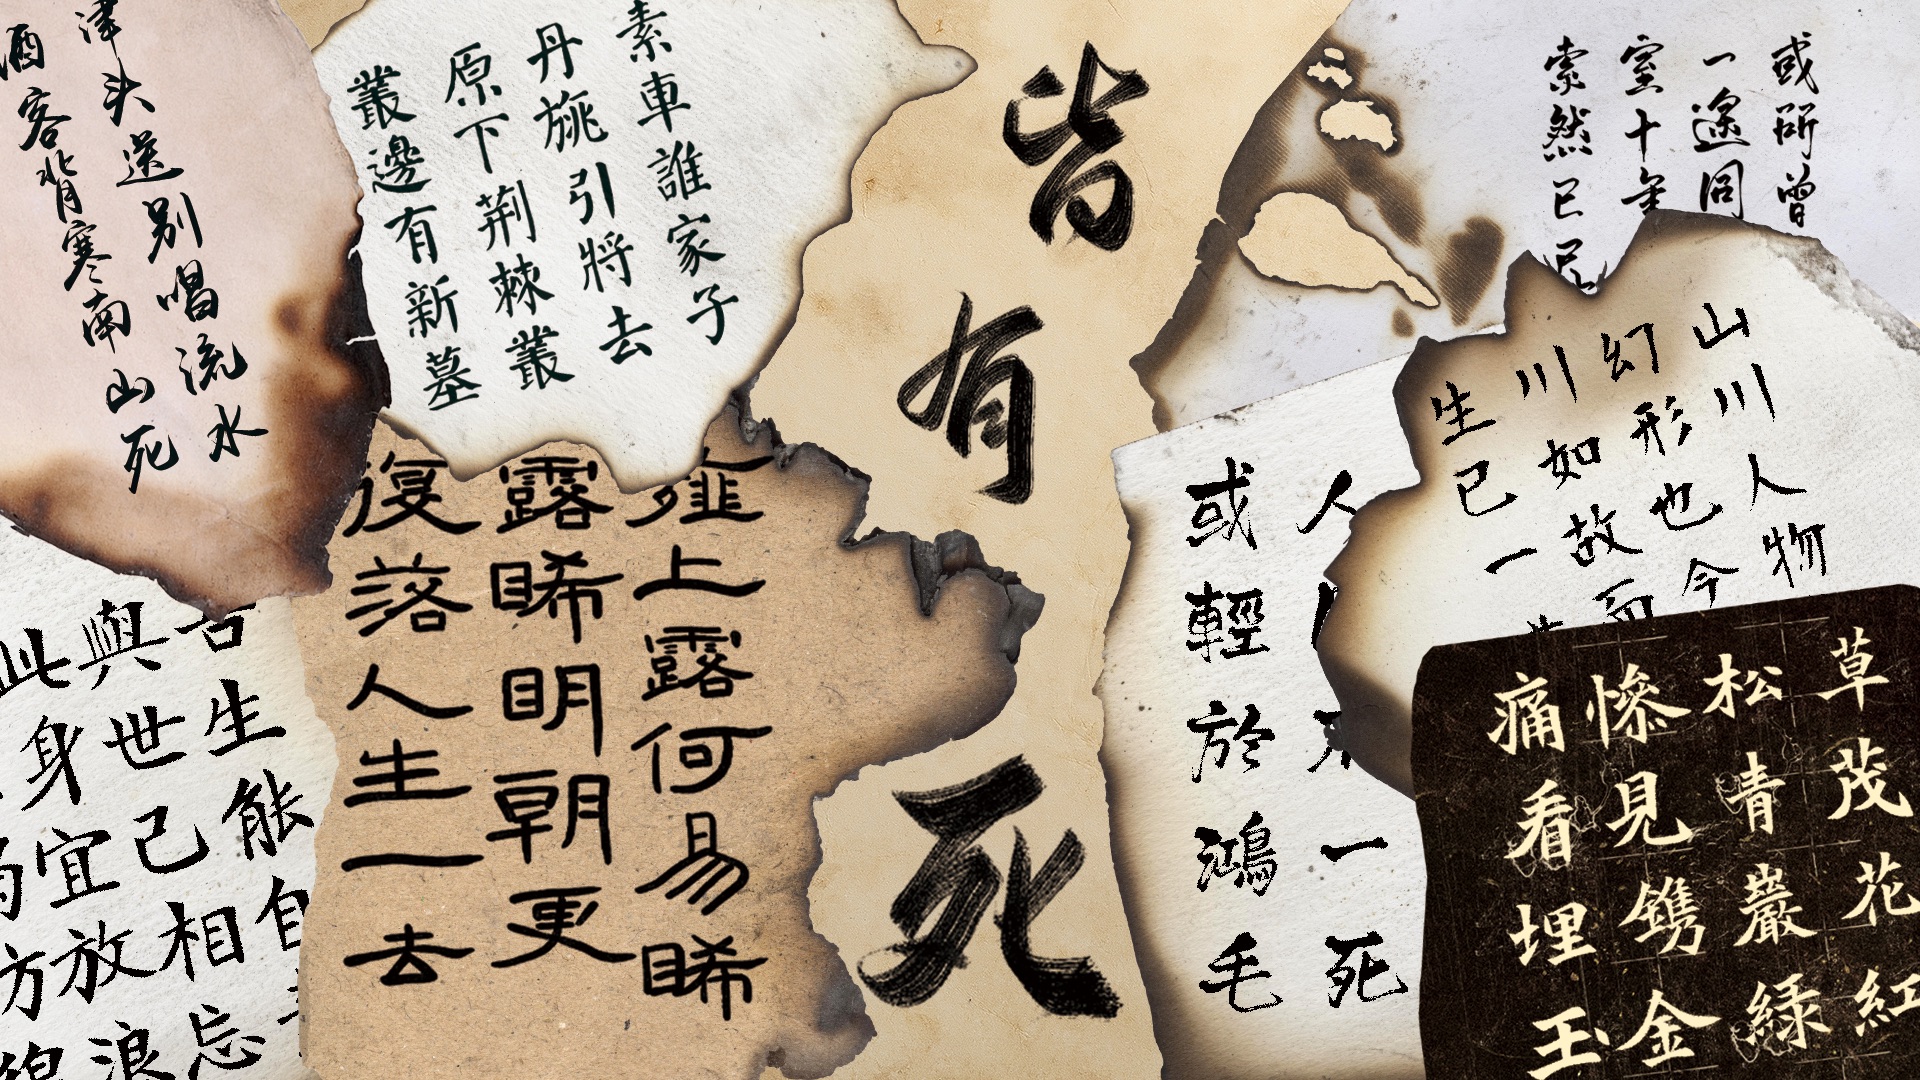 津头送别唱流水
酒客背寒南山死
素車誰家子
丹旐引將去
原下荊棘叢
叢邊有新墓
皆有死
或所曾
一途同
室十年
索然已已
山川人物
幻形也今
川如故而
生已一
人
一死
或輕於鴻毛
草茂花紅
松青巖緑
慘見鐫金
痛看埋玉
薤上露何易晞
露晞明朝更
復落人生一去
吾生能自
與世已相忘
此身宜放浪